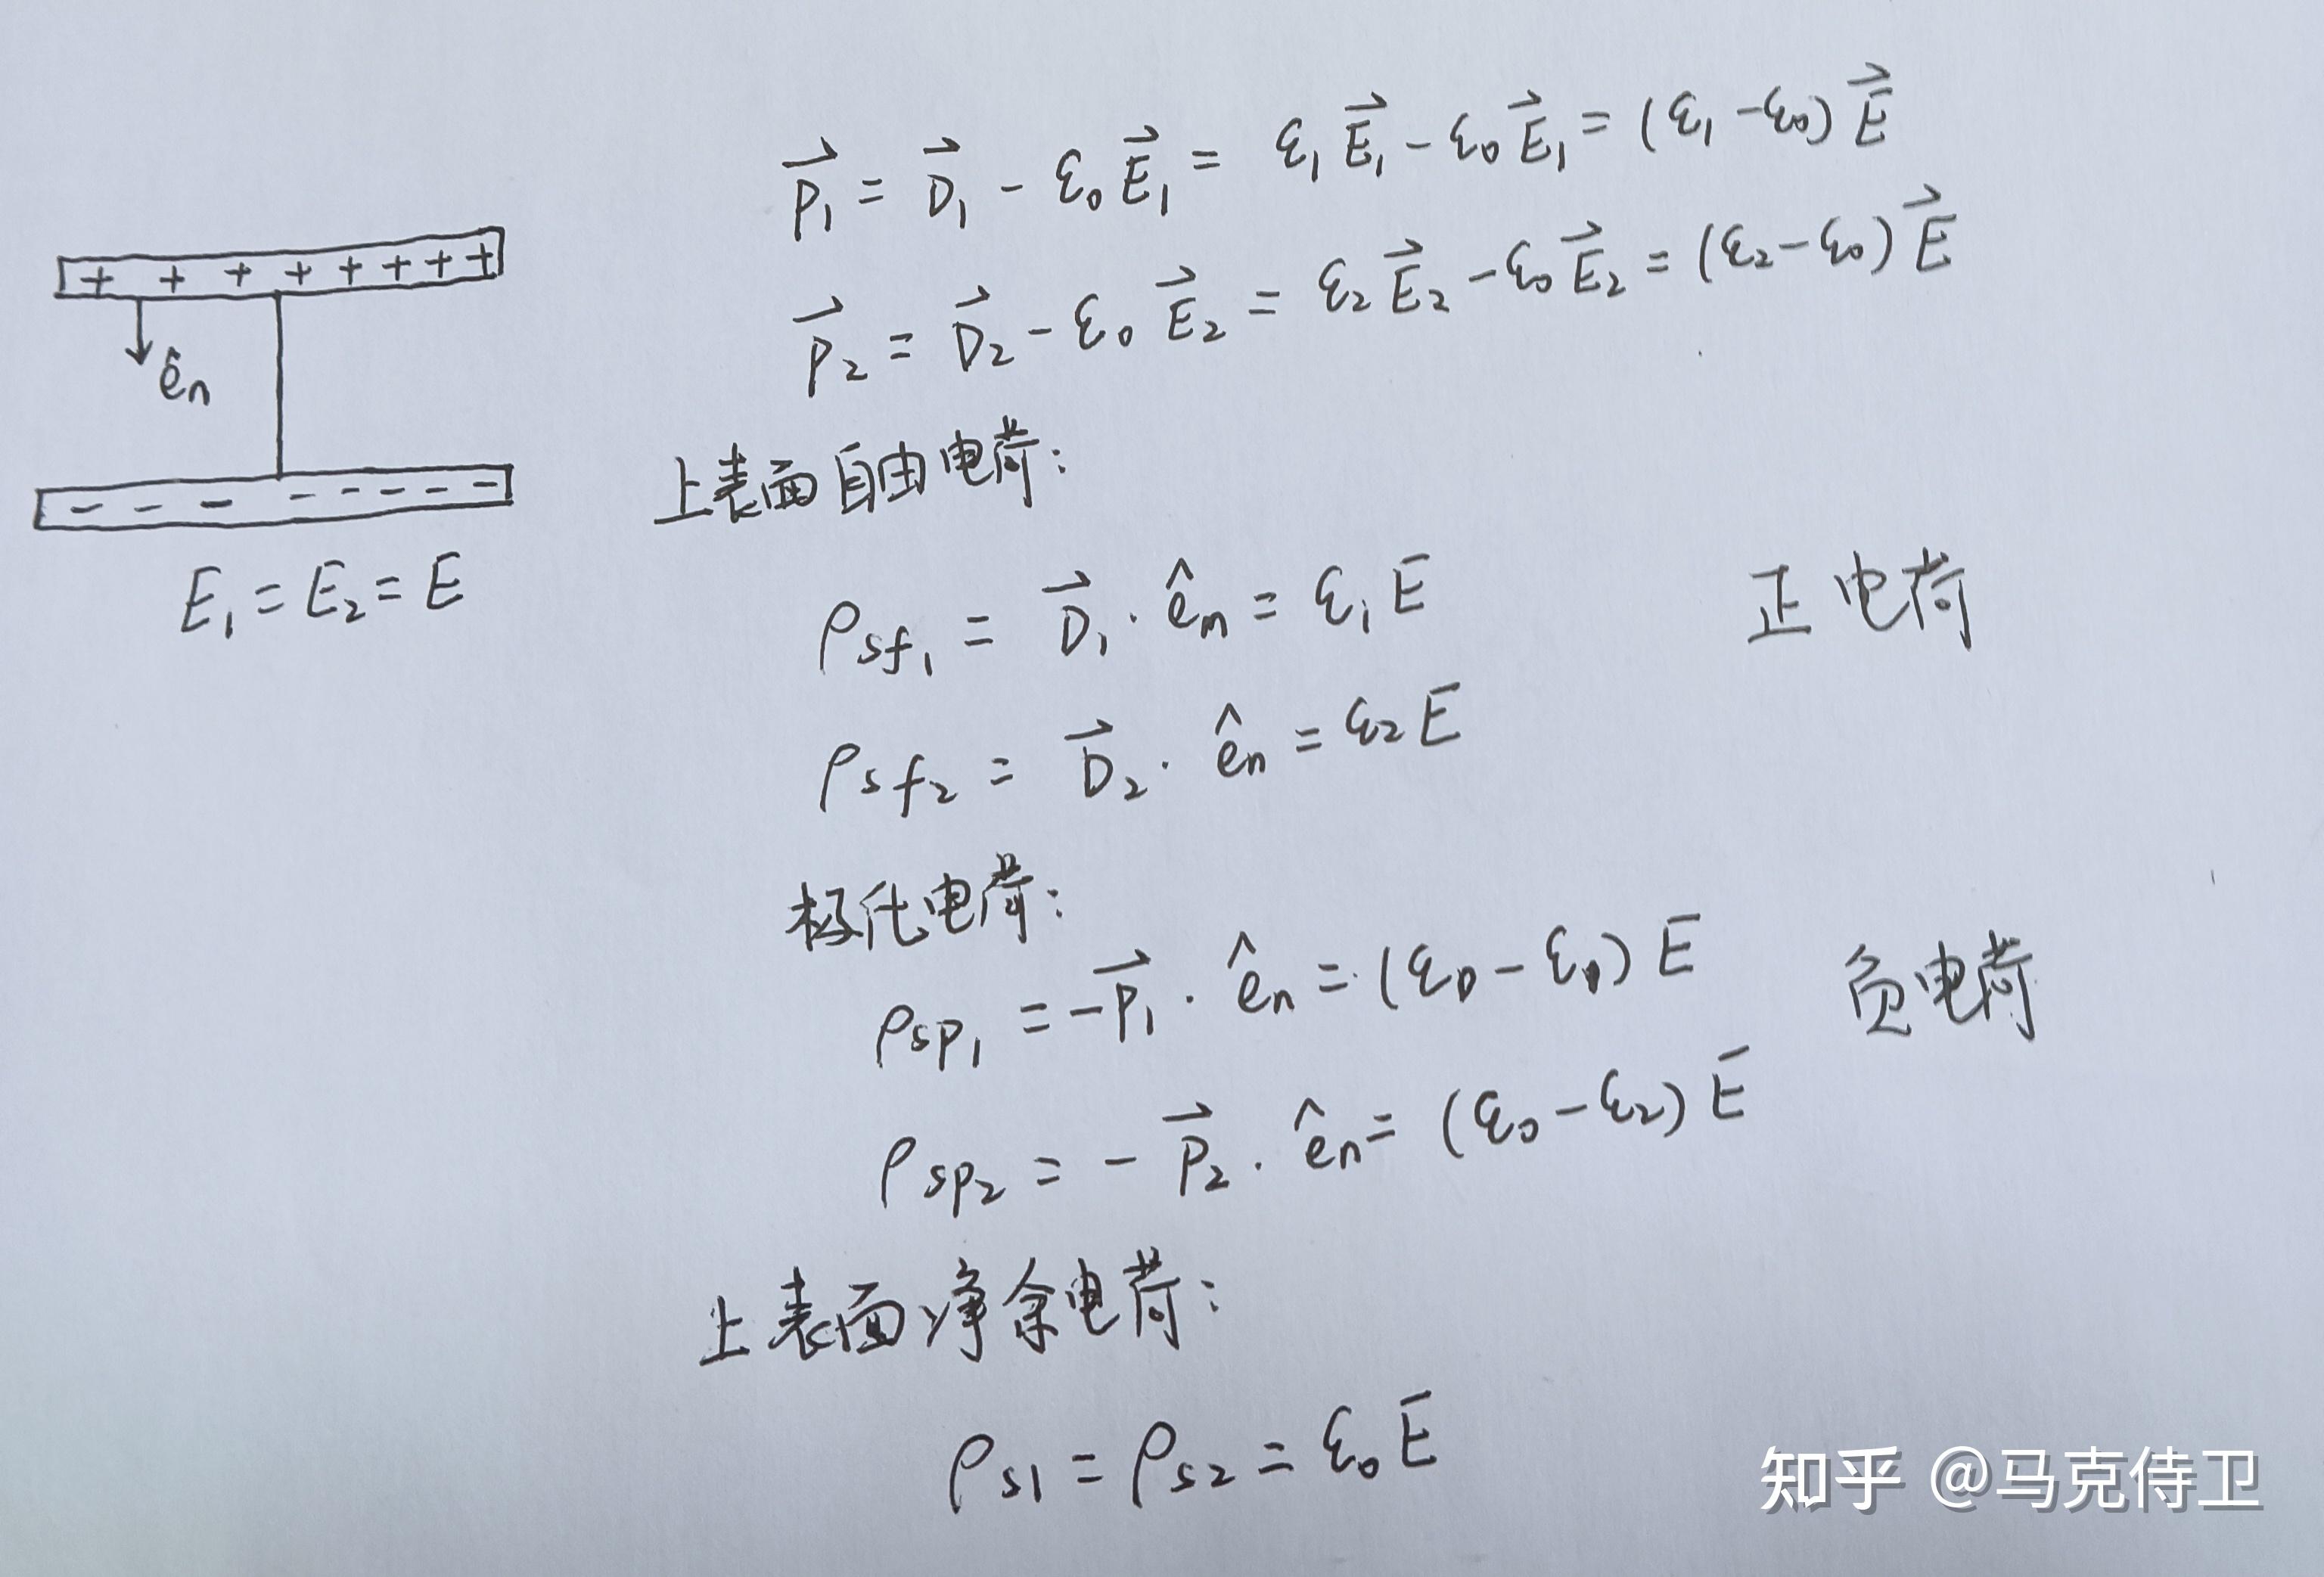 P⃗₁ = D⃗₁ - ε₀E⃗₁ = ε₁E⃗₁ - ε₀E⃗₁ = (ε₁ - ε₀)E⃗
P⃗₂ = D⃗₂ - ε₀E⃗₂ = ε₂E⃗₂ - ε₀E⃗₂ = (ε₂ - ε₀)E⃗
+ + + + + + + +
êₙ
- - - - - - - -
E₁ = E₂ = E
上表面自由电荷:
ρsf₁ = D⃗₁ · êₙ = ε₁E 正电荷
ρsf₂ = D⃗₂ · êₙ = ε₂E
极化电荷:
ρsp₁ = -P⃗₁ · êₙ = (ε₀ - ε₁)E 负电荷
ρsp₂ = -P⃗₂ · êₙ = (ε₀ - ε₂)E
上表面净余电荷:
ρs1 = ρs2 = ε₀E
知乎 @马克侍卫